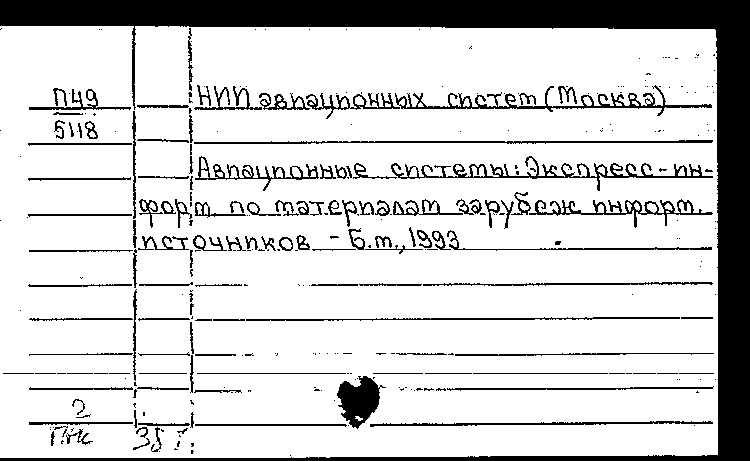 П49
5118
НИИ авиационных систем (Москва)
Авиационные системы: Экспресс-ин-
форм. по материалам зарубеж информ.
источников - Б.м., 1993
2